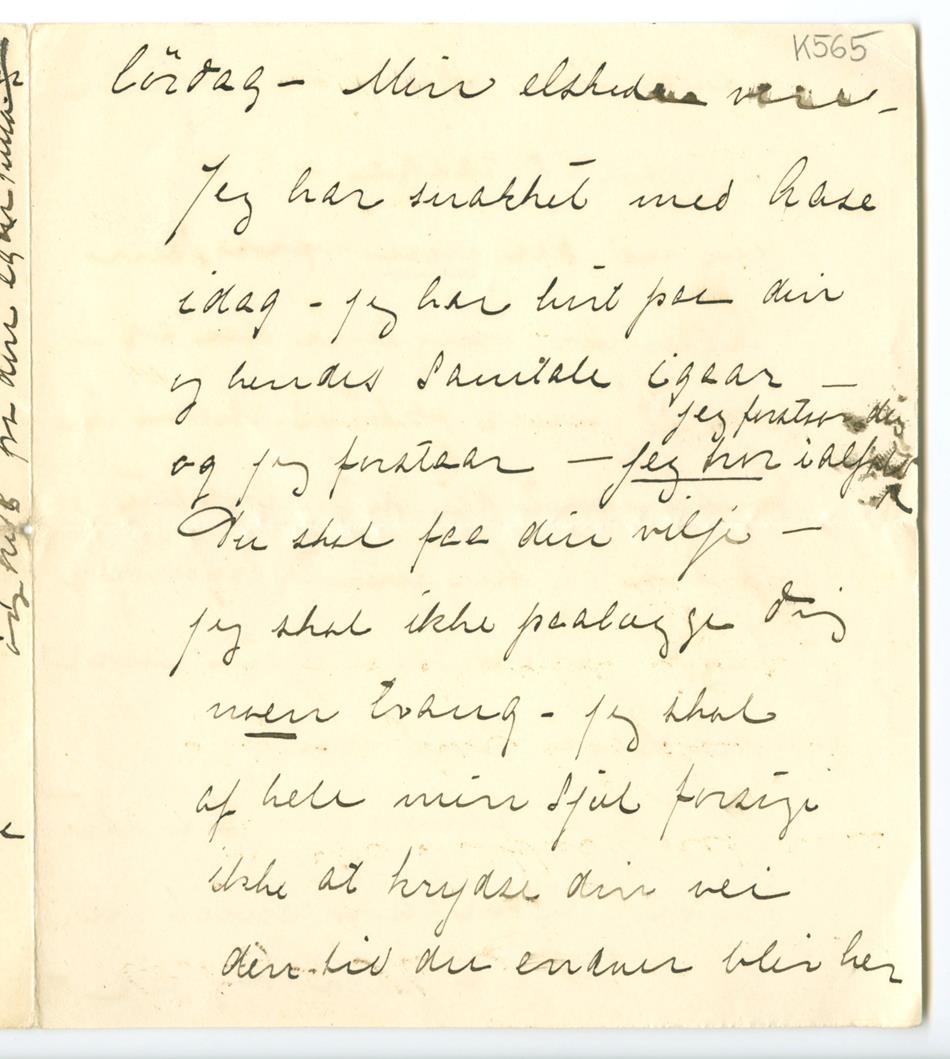 K565
lördag – Min elskede ven –
Jeg har snakket med Aase
idag – jeg har hørt paa din
og hendes Samtale igaar –
jeg forstaar dig
og jeg forstaar – jeg tror ialfald
Du skal faa din vilje –
jeg skal ikke paalægge Dig
noen tvang – jeg skal
af hele min Sjæl forsöge
ikke at krydse din vei
den tid du endnu blir her